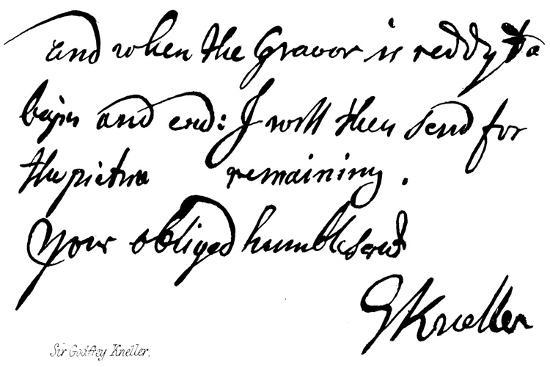 and when the Gravor is reddy to
begin and end: I will then send for
the picture remaining.
Your obliged humble servt
GKneller
Sir Godfrey Kneller.